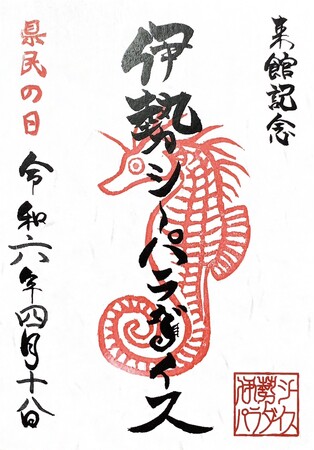 来館記念
伊勢シーパラダイス
県民の日
令和六年四月十八日
伊勢シー
パラダイス